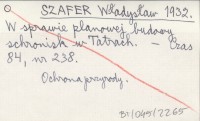 O. SZAFER Władysław 1932.
W sprawie planowej budowy
schronisk w Tatrach. – Czas
84, nr 238.
Ochrona przyrody.
BI/045/2265